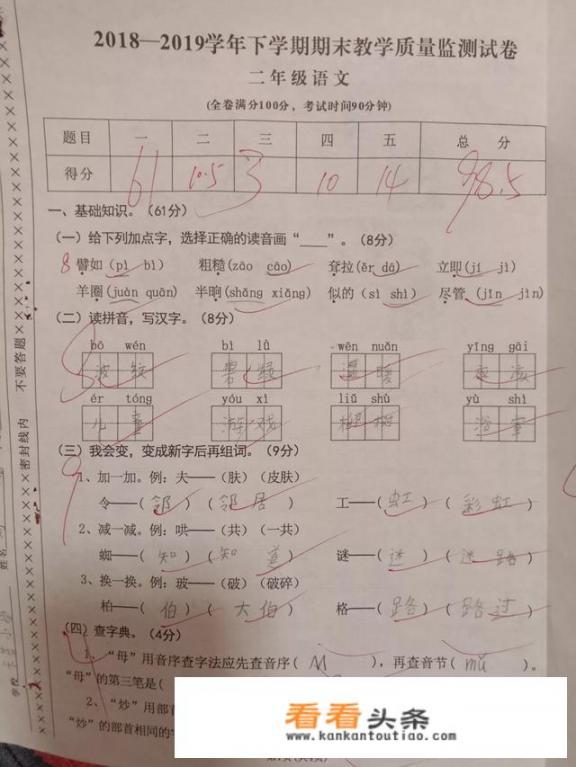 2018—2019学年下学期期末教学质量监测试卷
二年级语文
(全卷满分100分，考试时间90分钟)
题目 一 二 三 四 五 总 分
得分 61 10.5 3 10 14 98.5
一、基础知识。(61分)
(一)给下列加点字，选择正确的读音画“____”。(8分)
8 譬如(pì bì) 粗糙(zāo cāo) 耷拉(ěr dā) 立即(jí jì)
羊圈(juàn quān) 半晌(shǎng xiǎng) 似的(sì shì) 尽管(jǐn jìn)
(二)读拼音，写汉字。(8分)
bō wén bì lǜ wēn nuǎn yīng gāi
波纹 碧绿 温暖 应该
ér tóng yóu xì liǔ shù yù shì
儿童 游戏 柳树 浴室
(三)我会变，变成新字后再组词。(9分)
9
1、加一加。例：夫——(肤)(皮肤)
令——(邻)(邻居) 工——(虹)(彩虹)
2、减一减。例：哄——(共)(一共)
蜘——(知)(知道) 谜——(迷)(迷路)
3、换一换。例：玻——(破)(破碎)
柏——(伯)(大伯) 格——(路)(路过)
(四)查字典。(4分)
1、“母”用音序查字法应先查音序(M)，再查音节(mǔ)。
“母”的第三笔是(
2、“炒”用部首
“炒”的部首相同的
看看头条
www.kankantoutiao.com
不要答题
密封线内
姓名
学校